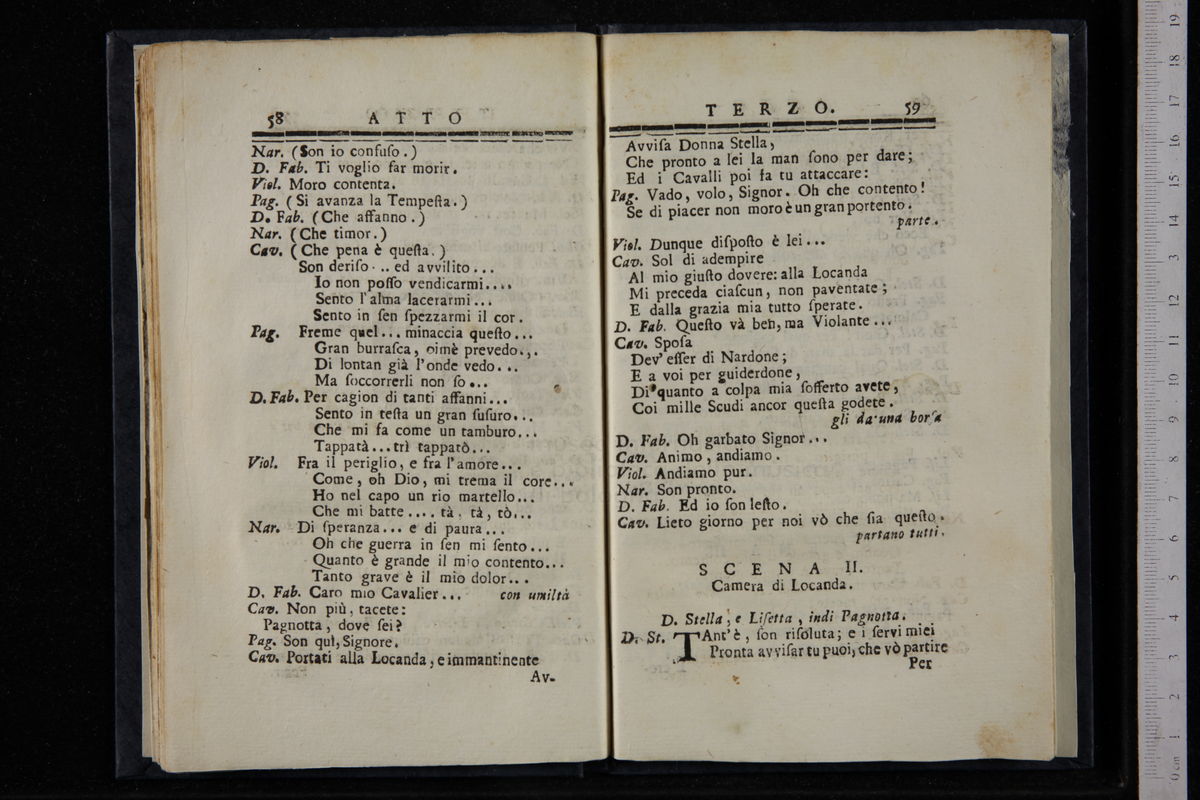 58 ATTO
Nar. (Son io confuſo.)
D. Fab. Ti voglio far morir.
Viol. Moro contenta.
Pag. (Si avanza la Tempeſta.)
D. Fab. (Che affanno.)
Nar. (Che timor.)
Cav. (Che pena è queſta.)
Son deriſo... ed avvilito...
Io non poſſo vendicarmi....
Sento l'alma lacerarmi...
Sento in ſen ſpezzarmi il cor.
Pag. Freme quel... minaccia queſto...
Gran burraſca, oimè prevedo...
Di lontan già l'onde vedo...
Ma ſoccorrerli non ſo...
D. Fab. Per cagion di tanti affanni...
Sento in teſta un gran ſuſuro...
Che mi fa come un tamburo...
Tappatà...trì tappatò...
Viol. Fra il periglio, e fra l'amore...
Come, oh Dio, mi trema il core...
Ho nel capo un rio martello...
Che mi batte.... tà, tà, tò...
Nar. Di ſperanza... e di paura...
Oh che guerra in ſen mi ſento...
Quanto è grande il mio contento...
Tanto grave è il mio dolor...
D. Fab. Caro mio Cavalier... con umiltà
Cav. Non più, tacete:
Pagnotta, dove ſei?
Pag. Son quì, Signore.
Cav. Portati alla Locanda, e immantinente
Av-
TERZO. 59
Avviſa Donna Stella,
Che pronto a lei la man ſono per dare;
Ed i Cavalli poi fa tu attaccare:
Pag. Vado, volo, Signor. Oh che contento!
Se di piacer non moro è un gran portento.
parte.
Viol. Dunque diſpoſto è lei...
Cav. Sol di adempire
Al mio giuſto dovere: alla Locanda
Mi preceda ciaſcun, non paventate;
E dalla grazia mia tutto ſperate.
D. Fab. Queſto và ben, ma Violante...
Cav. Spoſa
Dev' eſſer di Nardone;
E a voi per guiderdone,
Di quanto a colpa mia ſofferto avete,
Coi mille Scudi ancor queſta godete.
gli da una borſa
D. Fab. Oh garbato Signor...
Cav. Animo, andiamo.
Viol. Andiamo pur.
Nar. Son pronto.
D. Fab. Ed io ſon leſto.
Cav. Lieto giorno per noi vò che ſia queſto.
partano tutti.
SCENA II.
Camera di Locanda.
D. Stella, e Liſetta, indi Pagnotta.
D. St. TAnt' è, ſon riſoluta; e i ſervi miei
Pronta avviſar tu puoi, che vò partire
Per
19
18
17
16
15
14
13
12
11
10
9
8
7
6
5
4
3
2
1
0 cm